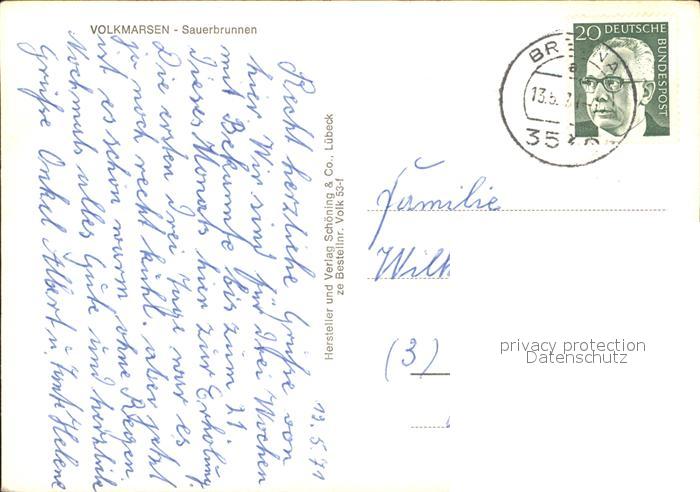 VOLKMARSEN - Sauerbrunnen
13.5.71
Recht herzliche Grüße von
hier. Wir sind für drei Wochen
mit Bekannte bis zum 21
dieses Monats hier zur Erholung
Die ersten drei Tage war es
ja noch recht kühl. aber jetzt
ist es schön warm ohne Regen.
Nochmals alles Gute und herzliche
Grüße Onkel Albert u. Tante Helene
Hersteller und Verlag Schöning & Co., Lübeck
ze Bestellnr. Volk 53-f
20 DEUTSCHE
BUNDESPOST
13.5.7
Familie
(3)
privacy protection
Datenschutz